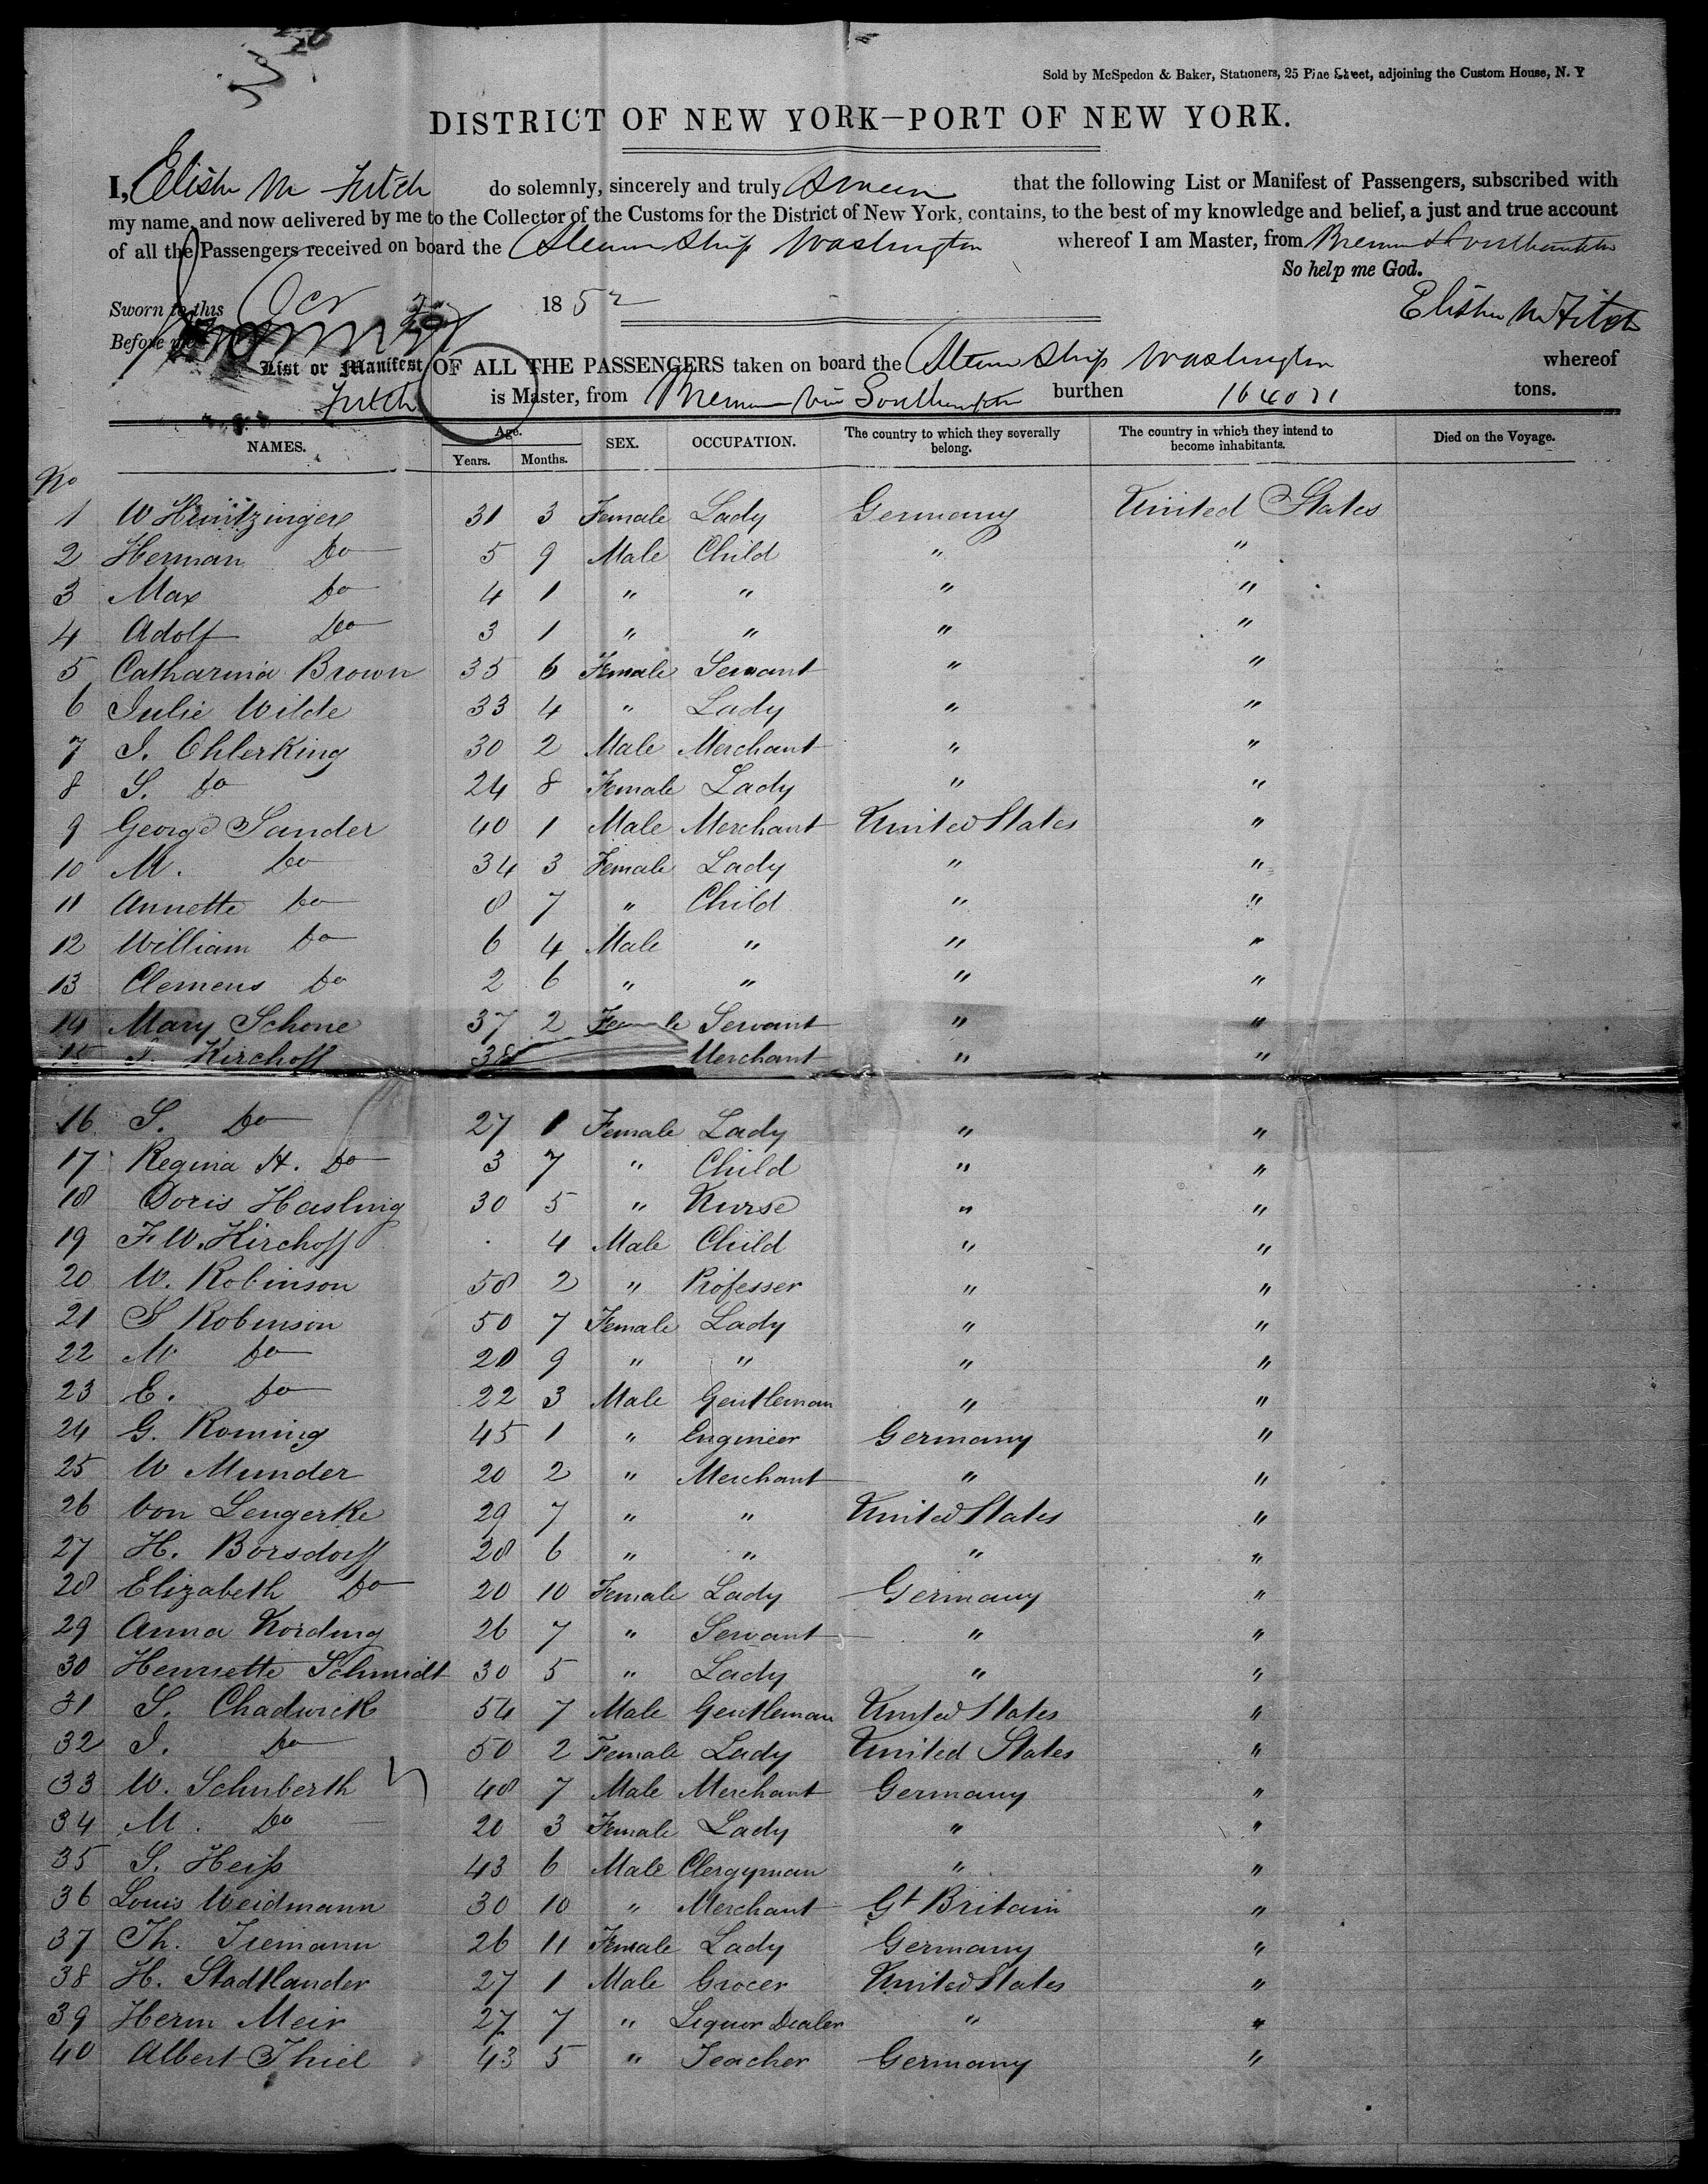 Sold by McSpedon & Baker, Stationers, 25 Pine Street, adjoining the Custom House, N. Y
DISTRICT OF NEW YORK—PORT OF NEW YORK.
I, Elisha M Fitch do solemnly, sincerely and truly Swear that the following List or Manifest of Passengers, subscribed with
my name, and now delivered by me to the Collector of the Customs for the District of New York, contains, to the best of my knowledge and belief, a just and true account
of all the Passengers received on board the Steam Ship Washington whereof I am Master, from Bremen & Southampton
So help me God.
Sworn to this Oct 1852
Elisha M Fitch
Before me
List or Manifest OF ALL THE PASSENGERS taken on board the Steam Ship Washington whereof
Fitch is Master, from Bremen via Southampton burthen 1640 71 tons.
NAMES. Age. Years. Months. SEX. OCCUPATION. The country to which they severally belong. The country in which they intend to become inhabitants. Died on the Voyage.
No
1 W Heintzinger 31 3 Female Lady Germany United States
2 Herman Do 5 9 Male Child " "
3 Max Do 4 1 " " " "
4 Adolf Do 3 1 " " " "
5 Catharina Brown 35 6 Female Servant " "
6 Julie Wilde 33 4 " Lady " "
7 J. Ohlerking 30 2 Male Merchant " "
8 S. Do 24 8 Female Lady " "
9 George Sander 40 1 Male Merchant United States "
10 M. Do 34 3 Female Lady " "
11 Annette Do 8 7 " Child " "
12 William Do 6 4 Male " " "
13 Clemens Do 2 6 " " " "
14 Mary Schone 37 2 Female Servant " "
15 Kirchoff 38 Merchant " "
16 S. Do 27 1 Female Lady " "
17 Regina H. Do 3 7 " Child " "
18 Doris Hasling 30 5 " Nurse " "
19 F. W. Kirchoff 4 Male Child " "
20 W. Robinson 58 2 " Professer " "
21 S Robinson 50 7 Female Lady " "
22 M Do 20 9 " " " "
23 E. Do 22 3 Male Gentleman " "
24 G. Roming 45 1 " Engineer Germany "
25 W Munder 20 2 " Merchant " "
26 von Lengerke 29 7 " " United States "
27 H. Borsdorff 28 6 " " " "
28 Elizabeth Do 20 10 Female Lady Germany "
29 Anna Kording 26 7 " Servant " "
30 Henriette Schmidt 30 5 " Lady " "
31 S. Chadwick 54 7 Male Gentleman United States "
32 J. Do 50 2 Female Lady United States "
33 W. Schuberth 48 7 Male Merchant Germany "
34 M. Do 20 3 Female Lady " "
35 S. Heiſs 43 6 Male Clergyman " "
36 Louis Weidmann 30 10 " Merchant Gt Britain "
37 Th. Tiemann 26 11 Female Lady Germany "
38 H. Stadtlander 27 1 Male Grocer United States "
39 Herm Meir 27 7 " Liquor Dealer " "
40 Albert Thiel 43 5 " Teacher Germany "